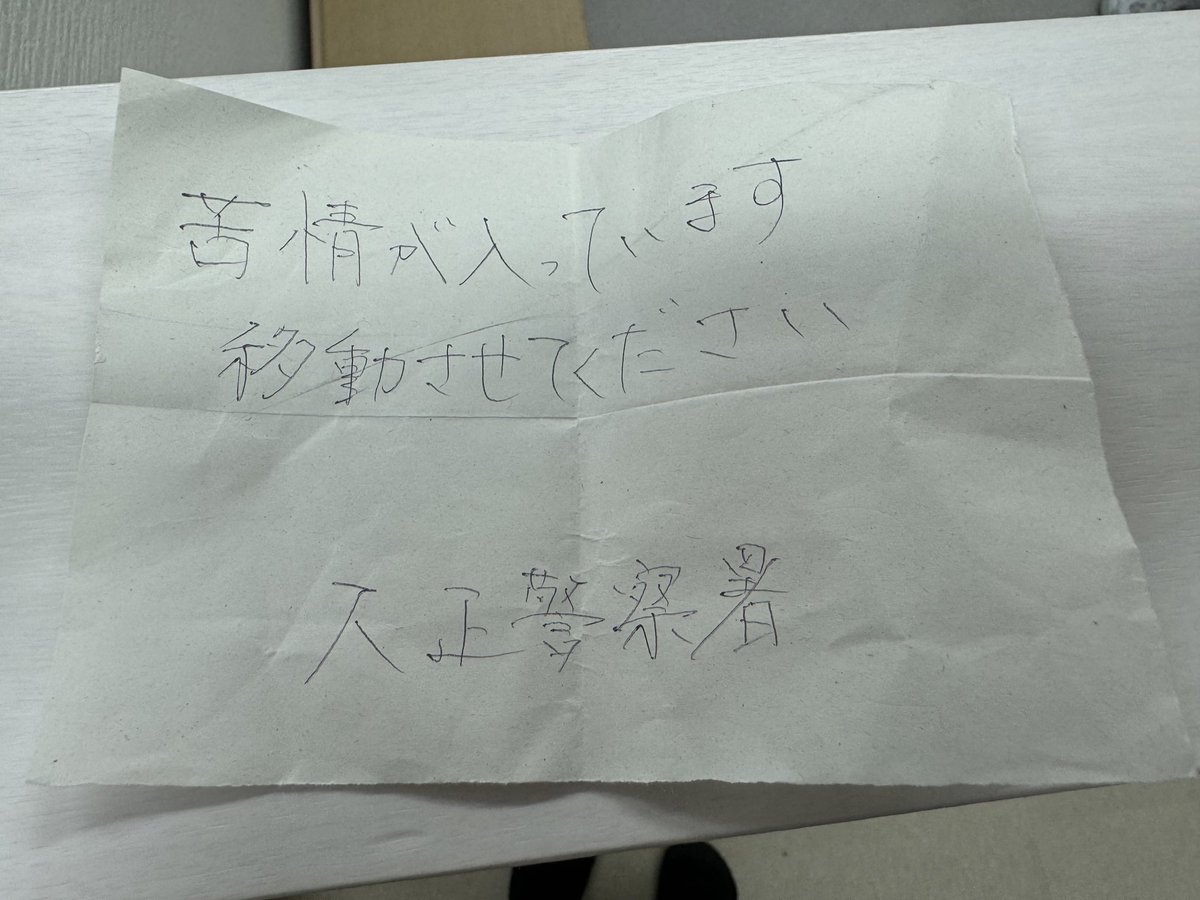 苦情が入っています
移動させてください
大正警察署